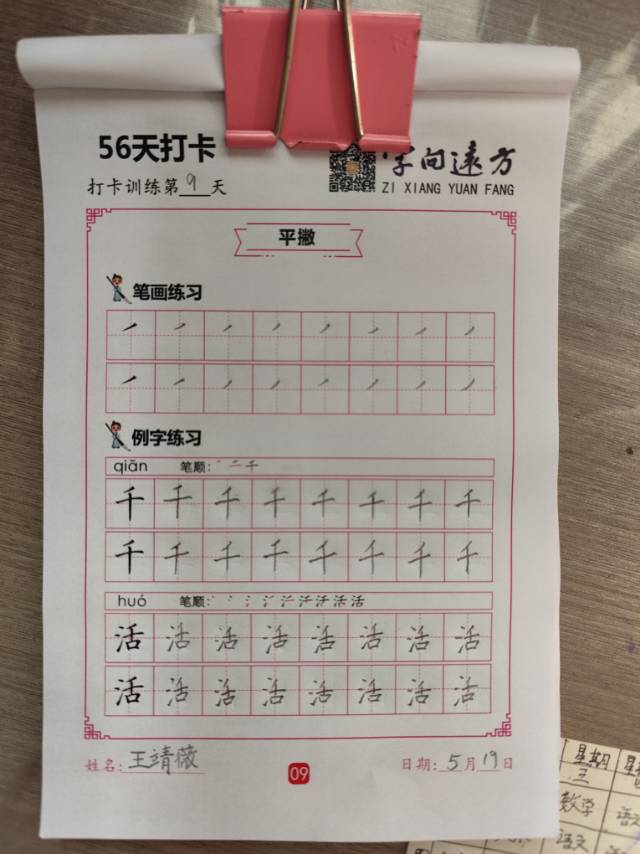 56天打卡
字向远方
打卡训练第9天
ZI XIANG YUAN FANG
平撇
笔画练习
例字练习
qiān 笔顺: 一 二 千
千 千 千 千 千 千 千 千
千 千 千 千 千 千 千 千
huó 笔顺:
活 活 活 活 活 活 活 活
活 活 活 活 活 活 活 活
姓名: 王靖薇
09
日期: 5月19日
星期三
数学
语文